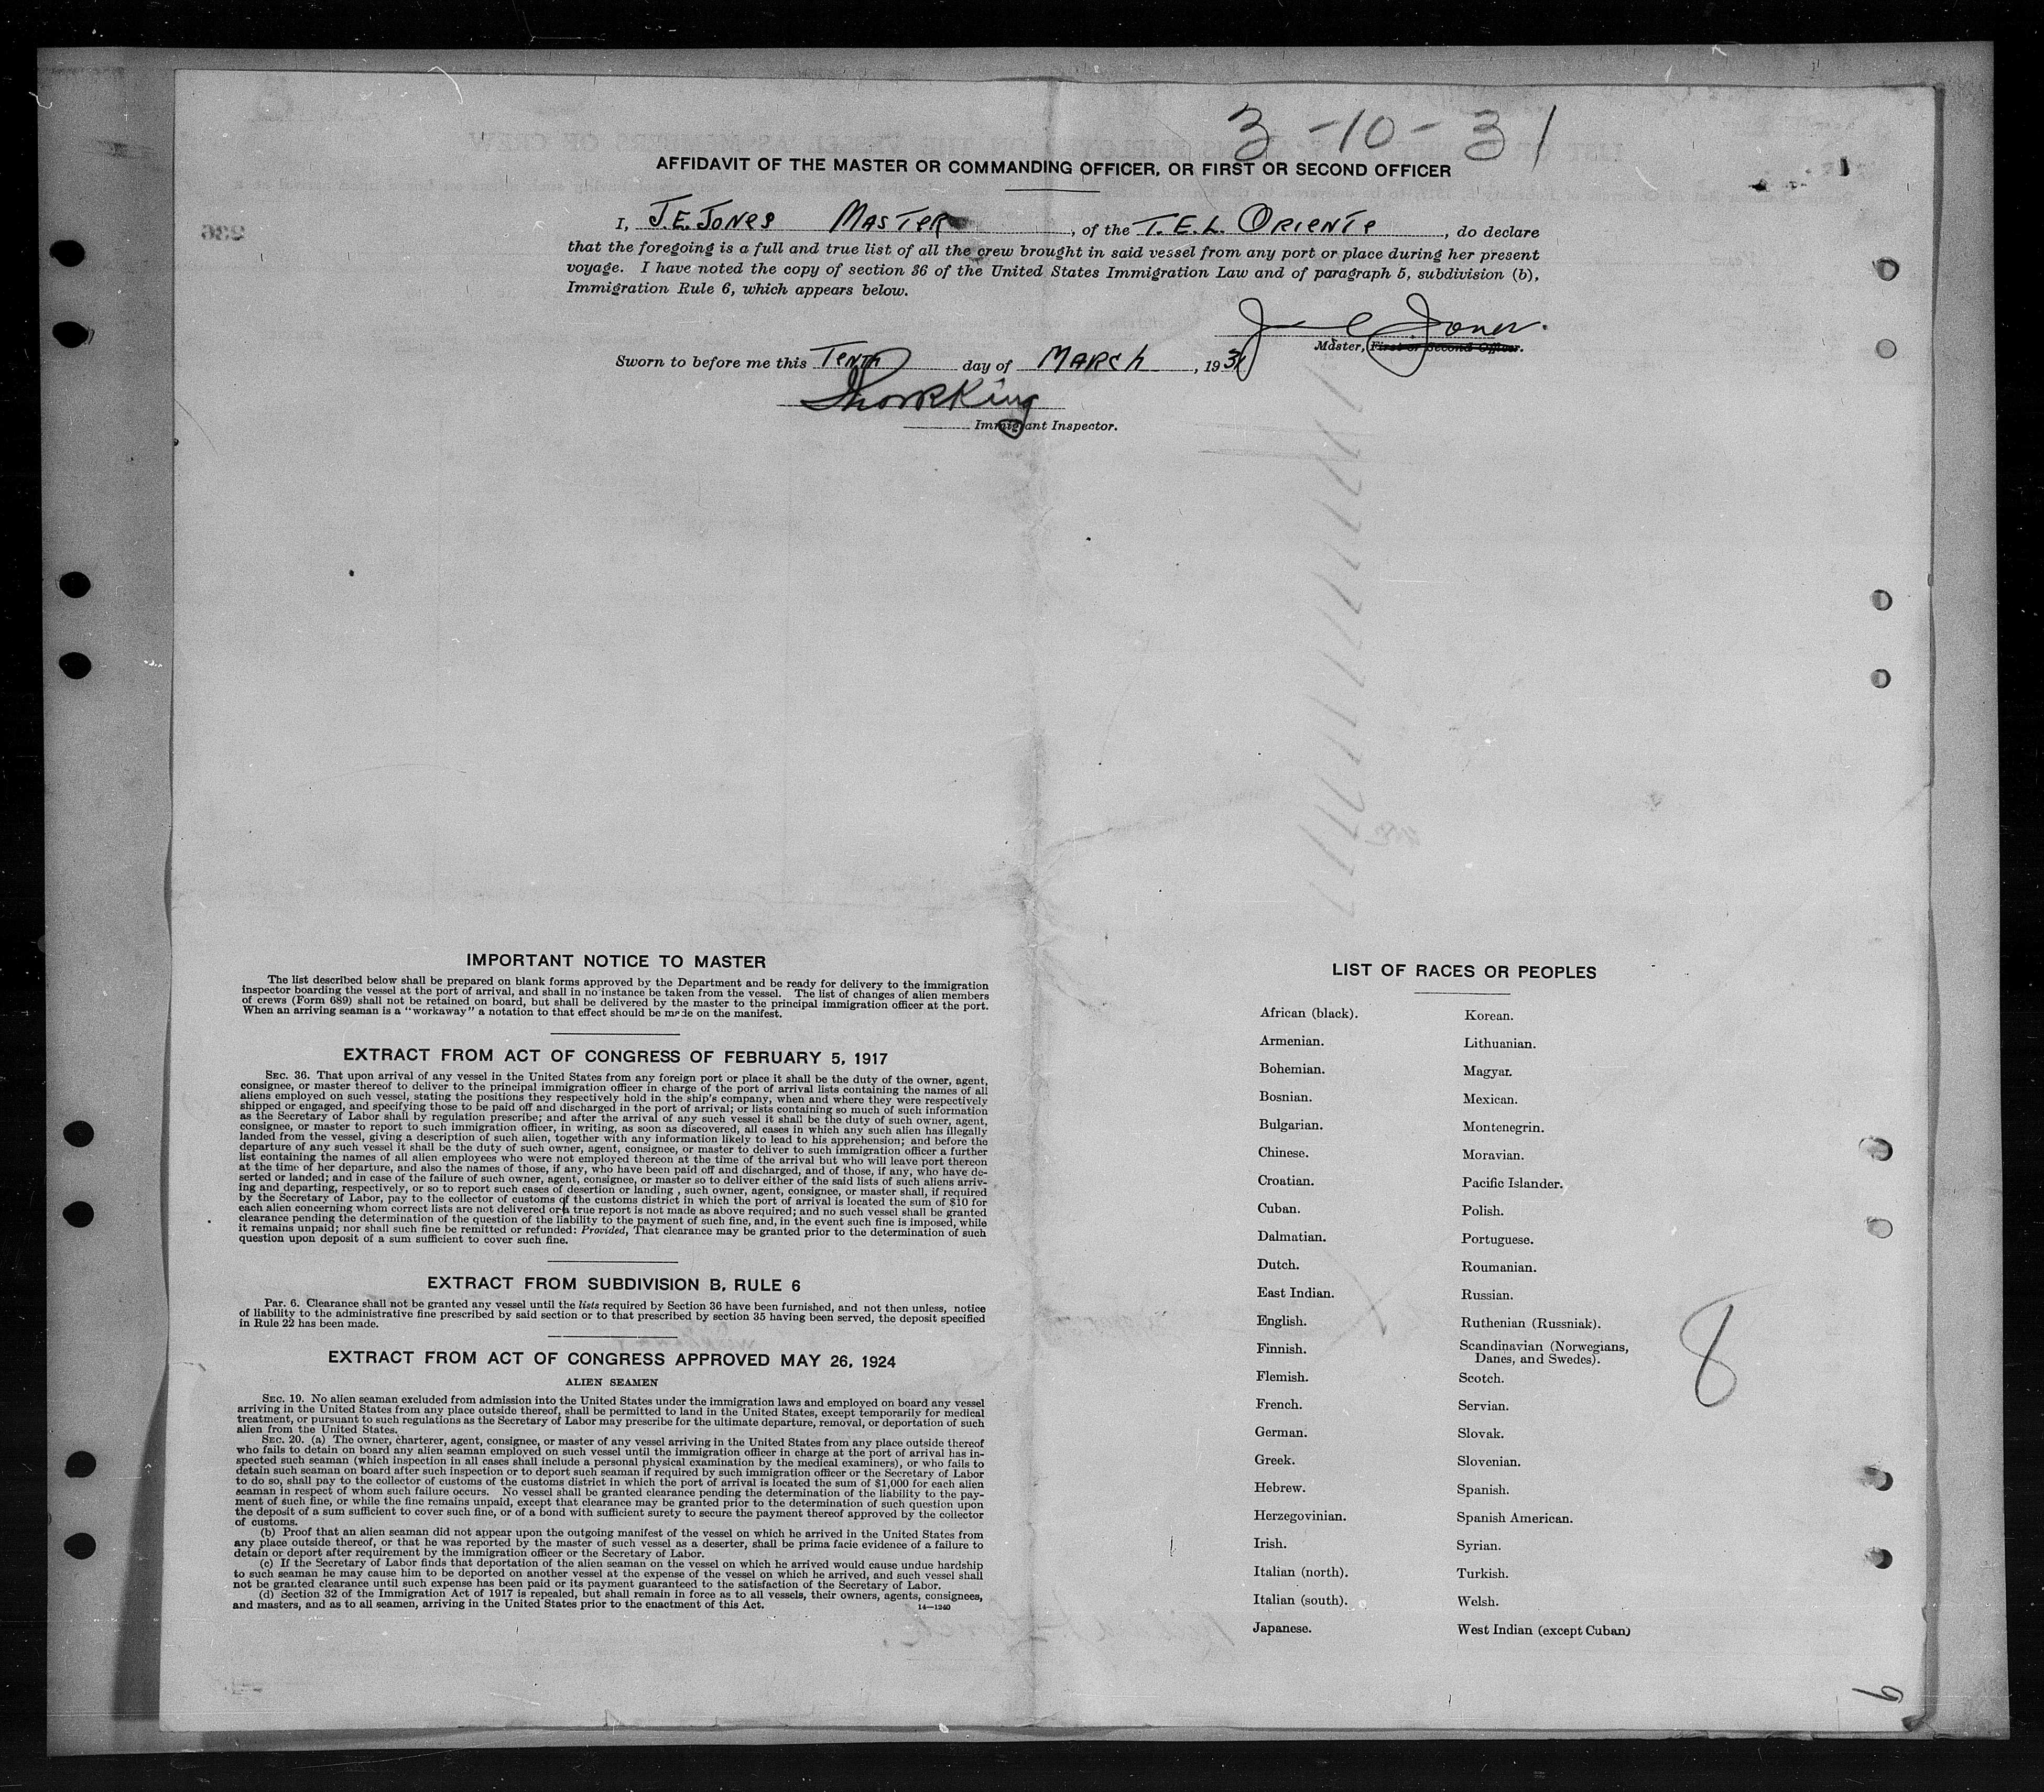 3-10-31
AFFIDAVIT OF THE MASTER OR COMMANDING OFFICER, OR FIRST OR SECOND OFFICER
I, J.E. JONES MASTER, of the T.E.L. ORIENTE, do declare
that the foregoing is a full and true list of all the crew brought in said vessel from any port or place during her present
voyage. I have noted the copy of section 36 of the United States Immigration Law and of paragraph 5, subdivision (b),
Immigration Rule 6, which appears below.
J E Jones.
Master, First or Second Officer.
Sworn to before me this TENTH day of MARCH, 1931
King
Immigrant Inspector.
IMPORTANT NOTICE TO MASTER
The list described below shall be prepared on blank forms approved by the Department and be ready for delivery to the immigration
inspector boarding the vessel at the port of arrival, and shall in no instance be taken from the vessel. The list of changes of alien members
of crews (Form 689) shall not be retained on board, but shall be delivered by the master to the principal immigration officer at the port.
When an arriving seaman is a "workaway" a notation to that effect should be made on the manifest.
EXTRACT FROM ACT OF CONGRESS OF FEBRUARY 5, 1917
SEC. 36. That upon arrival of any vessel in the United States from any foreign port or place it shall be the duty of the owner, agent,
consignee, or master thereof to deliver to the principal immigration officer in charge of the port of arrival lists containing the names of all
aliens employed on such vessel, stating the positions they respectively hold in the ship's company, when and where they were respectively
shipped or engaged, and specifying those to be paid off and discharged in the port of arrival; or lists containing so much of such information
as the Secretary of Labor shall by regulation prescribe; and after the arrival of any such vessel it shall be the duty of such owner, agent,
consignee, or master to report to such immigration officer, in writing, as soon as discovered, all cases in which any such alien has illegally
landed from the vessel, giving a description of such alien, together with any information likely to lead to his apprehension; and before the
departure of any such vessel it shall be the duty of such owner, agent, consignee, or master to deliver to such immigration officer a further
list containing the names of all alien employees who were not employed thereon at the time of the arrival but who will leave port thereon
at the time of her departure, and also the names of those, if any, who have been paid off and discharged, and of those, if any, who have de-
serted or landed; and in case of the failure of such owner, agent, consignee, or master so to deliver either of the said lists of such aliens arriv-
ing and departing, respectively, or so to report such cases of desertion or landing, such owner, agent, consignee, or master shall, if required
by the Secretary of Labor, pay to the collector of customs of the customs district in which the port of arrival is located the sum of $10 for
each alien concerning whom correct lists are not delivered or a true report is not made as above required; and no such vessel shall be granted
clearance pending the determination of the question of the liability to the payment of such fine, and, in the event such fine is imposed, while
it remains unpaid; nor shall such fine be remitted or refunded: Provided, That clearance may be granted prior to the determination of such
question upon deposit of a sum sufficient to cover such fine.
EXTRACT FROM SUBDIVISION B, RULE 6
PAR. 6. Clearance shall not be granted any vessel until the lists required by Section 36 have been furnished, and not then unless, notice
of liability to the administrative fine prescribed by said section or to that prescribed by section 35 having been served, the deposit specified
in Rule 22 has been made.
EXTRACT FROM ACT OF CONGRESS APPROVED MAY 26, 1924
ALIEN SEAMEN
SEC. 19. No alien seaman excluded from admission into the United States under the immigration laws and employed on board any vessel
arriving in the United States from any place outside thereof, shall be permitted to land in the United States, except temporarily for medical
treatment, or pursuant to such regulations as the Secretary of Labor may prescribe for the ultimate departure, removal, or deportation of such
alien from the United States.
SEC. 20. (a) The owner, charterer, agent, consignee, or master of any vessel arriving in the United States from any place outside thereof
who fails to detain on board any alien seaman employed on such vessel until the immigration officer in charge at the port of arrival has in-
spected such seaman (which inspection in all cases shall include a personal physical examination by the medical examiners), or who fails to
detain such seaman on board after such inspection or to deport such seaman if required by such immigration officer or the Secretary of Labor
to do so, shall pay to the collector of customs of the customs district in which the port of arrival is located the sum of $1,000 for each alien
seaman in respect of whom such failure occurs. No vessel shall be granted clearance pending the determination of the liability to the pay-
ment of such fine, or while the fine remains unpaid, except that clearance may be granted prior to the determination of such question upon
the deposit of a sum sufficient to cover such fine, or of a bond with sufficient surety to secure the payment thereof approved by the collector
of customs.
(b) Proof that an alien seaman did not appear upon the outgoing manifest of the vessel on which he arrived in the United States from
any place outside thereof, or that he was reported by the master of such vessel as a deserter, shall be prima facie evidence of a failure to
detain or deport after requirement by the immigration officer or the Secretary of Labor.
(c) If the Secretary of Labor finds that deportation of the alien seaman on the vessel on which he arrived would cause undue hardship
to such seaman he may cause him to be deported on another vessel at the expense of the vessel on which he arrived, and such vessel shall
not be granted clearance until such expense has been paid or its payment guaranteed to the satisfaction of the Secretary of Labor.
(d) Section 32 of the Immigration Act of 1917 is repealed, but shall remain in force as to all vessels, their owners, agents, consignees,
and masters, and as to all seamen, arriving in the United States prior to the enactment of this Act.
14—1240
LIST OF RACES OR PEOPLES
African (black). Korean.
Armenian. Lithuanian.
Bohemian. Magyar.
Bosnian. Mexican.
Bulgarian. Montenegrin.
Chinese. Moravian.
Croatian. Pacific Islander.
Cuban. Polish.
Dalmatian. Portuguese.
Dutch. Roumanian.
East Indian. Russian.
English. Ruthenian (Russniak).
Finnish. Scandinavian (Norwegians,
Danes, and Swedes).
Flemish. Scotch.
French. Servian.
German. Slovak.
Greek. Slovenian.
Hebrew. Spanish.
Herzegovinian. Spanish American.
Irish. Syrian.
Italian (north). Turkish.
Italian (south). Welsh.
Japanese. West Indian (except Cuban)
8
9